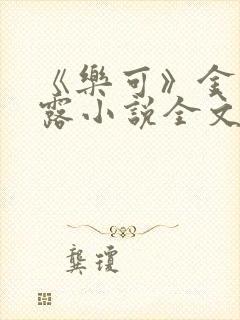 《樂可》金
露小說全文
龔瓊